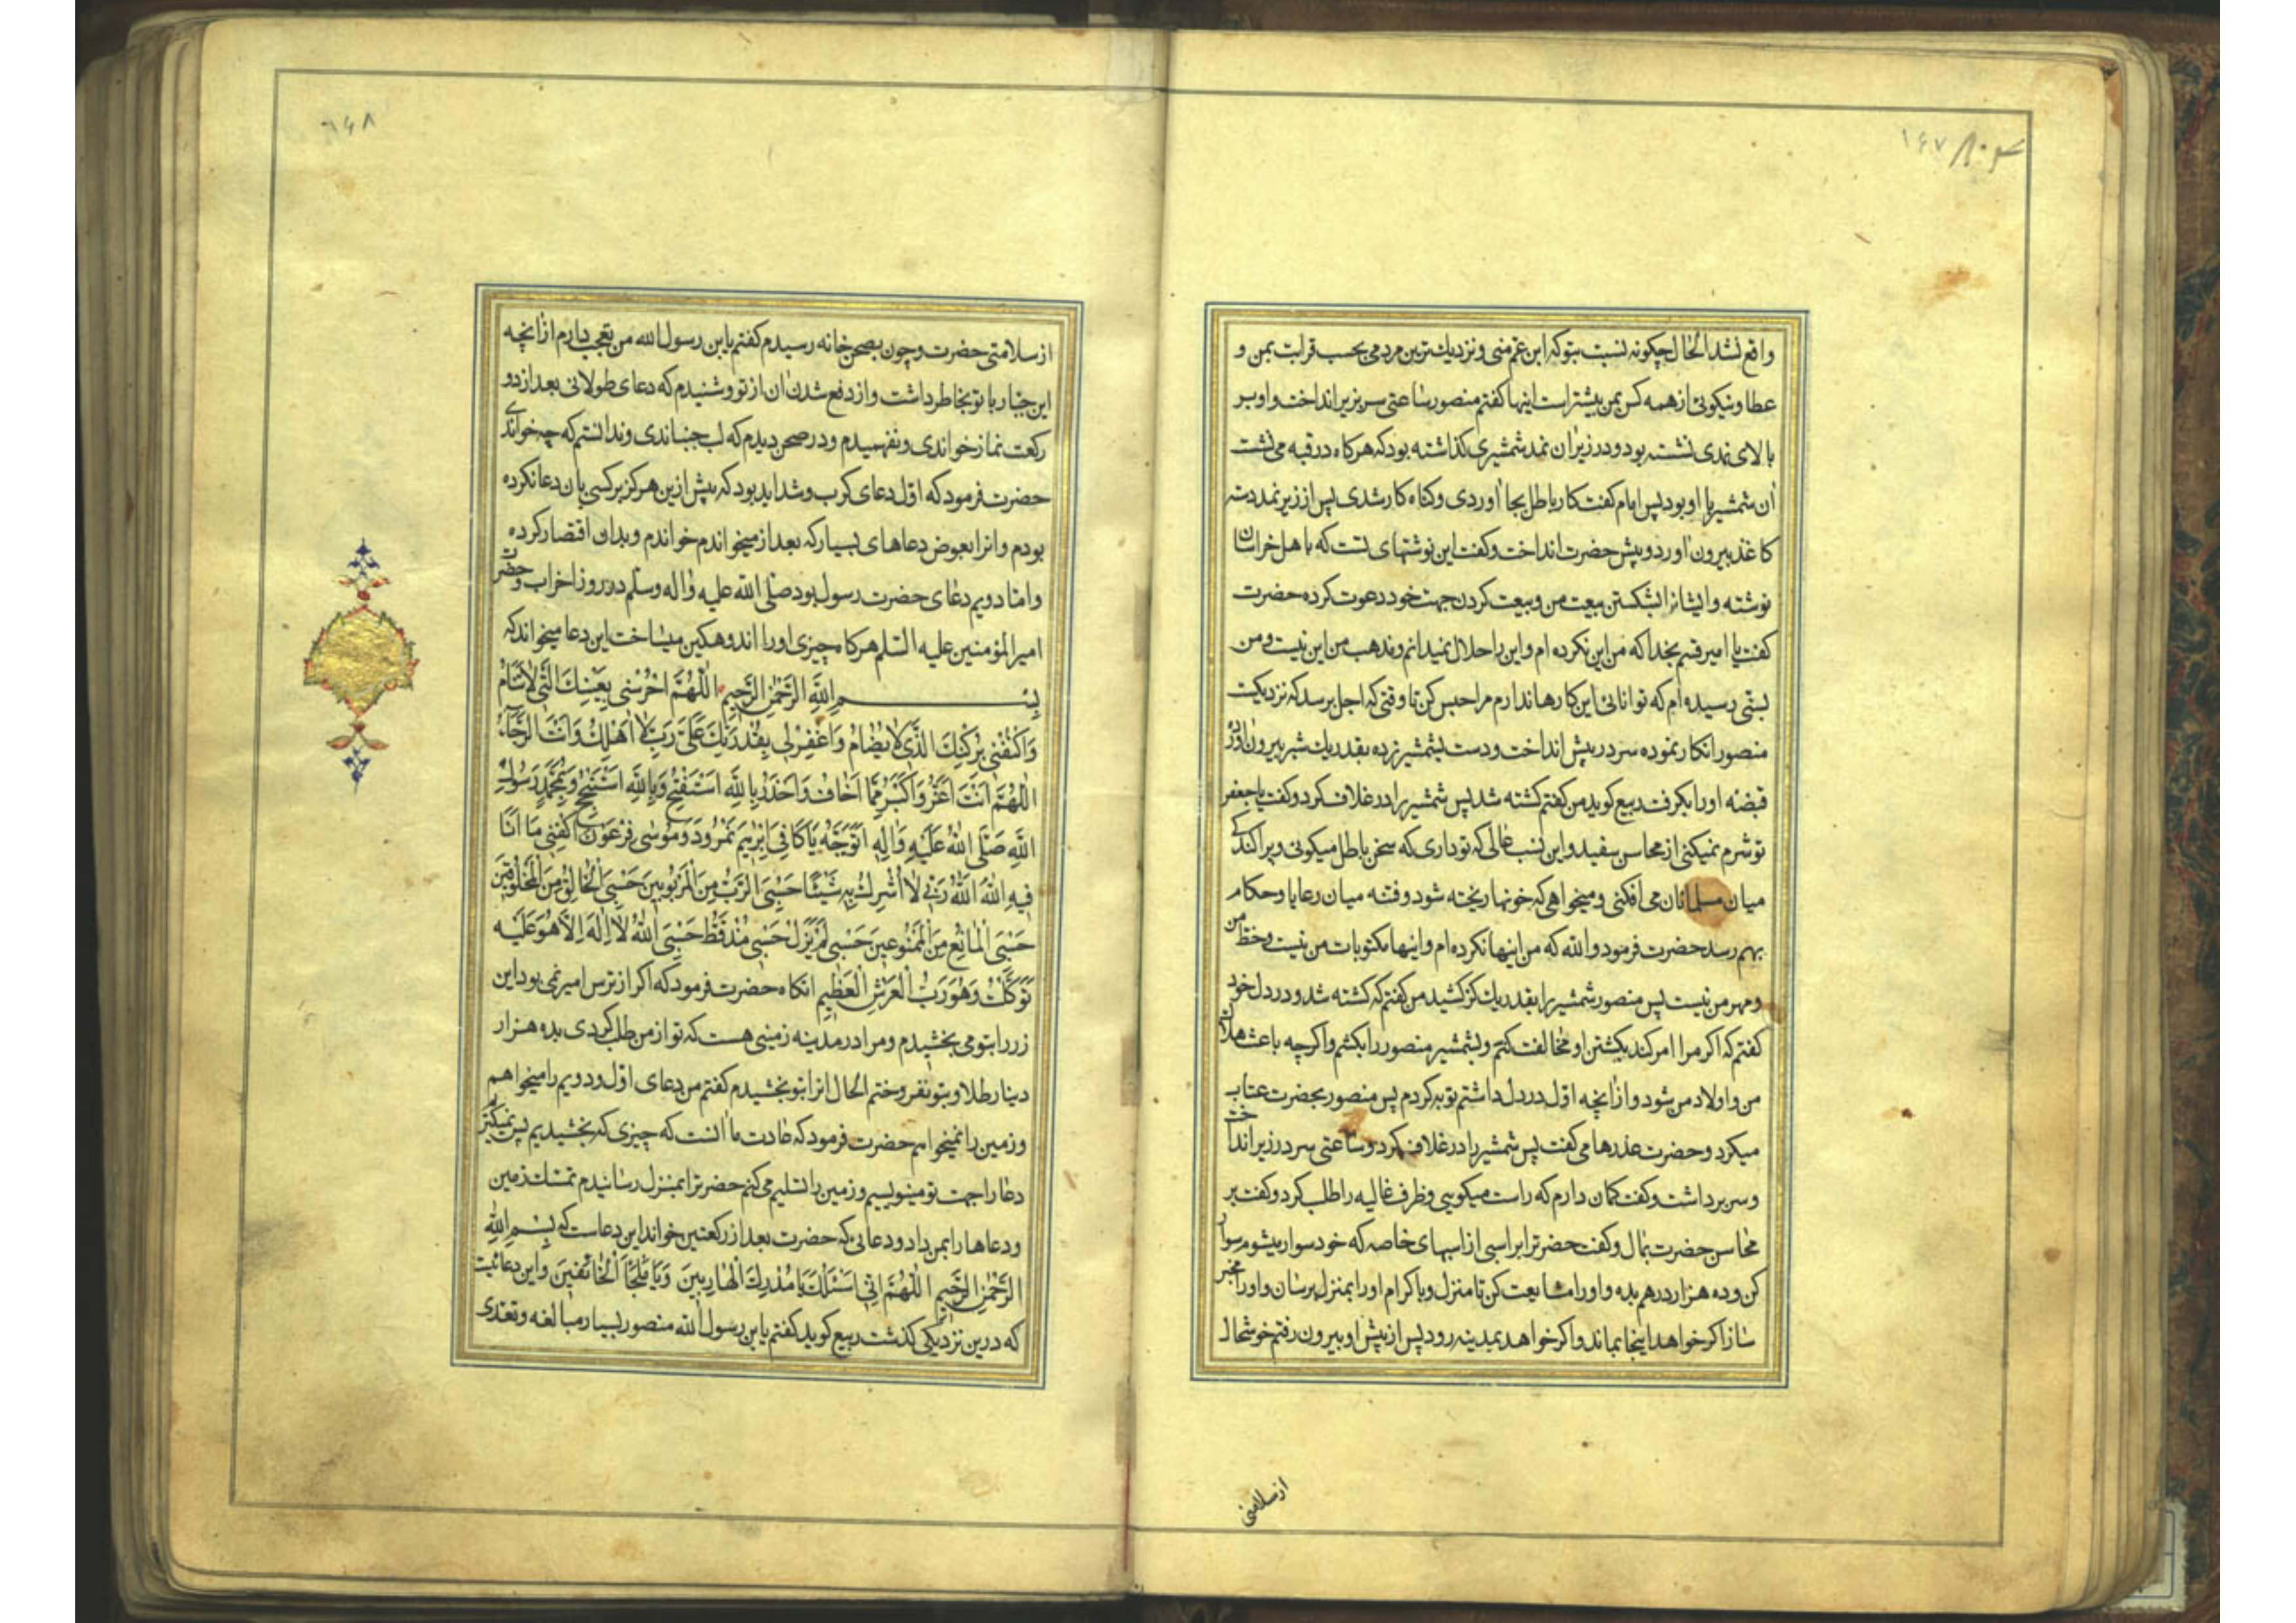 ۱۶۷
واقع نشد الحال چگونه نسبت بتو که ابن عم منی و نزدیک‌ترین مردمی بحسب قرابت بمن و
عطا و نیکوئی از همه کس بمن بیشتر است اینها کفتم منصور ساعتی سر بزیر انداخت و او بر
بالای نمدی نشسته بود و در زیر ان نمد شمشیری کذاشته بود که هرکاه در قبه می نشست
آن شمشیر با او بود پس ایام کفت کار باطل بجا آوردی و کناه کار شدی پس از زیر نمد دسته
کاغذ بیرون آورد و پیش حضرت انداخت و کفت این نوشتهای تست که باهل خراسان
نوشته و ایشانرا بشکستن بیعت من و بیعت کردن جهت خود دعوت کرده حضرت
کفت یا امیر قسم بخدا که من این نکرده ام و این را حلال نمیدانم و مذهب من این نیست و من
بسنّی رسیده ام که توانائی این کارها ندارم مرا حبس کن تا وقتی که اجل برسد که نزدیکست
منصور انکار نموده سر در پیش انداخت و دست بشمشیر زده بقدر یک شبر بیرون آورد
قبضه اورا بکرفت ربیع کوید من کفتم کشته شد پس شمشیر را در غلاف کرد و کفت یا جعفر
تو شرم نمیکنی از محاسن سفید و این نسب عالی که تو داری که سخن باطل میکوئی و پراکندکی
میان مسلمانان می افکنی و میخواهی که خونها ریخته شود و فتنه میان رعایا و حکام
بهم رسد حضرت فرمود والله که من اینها نکرده ام و اینها مکتوبات من نیست و خط من
و مهر من نیست پس منصور شمشیر را بقدر یک کز کشید من کفتم که کشته شد و در دل خود
کفتم که اکر مرا امر کند بکشتن او مخالفت کنم و بشمشیر منصور را بکشم و اکرچه باعث هلاک
من و اولاد من شود و از انچه اول در دل داشتم توبه کردم پس منصور بحضرت عتاب
میکرد و حضرت عذرها می کفت پس شمشیر را در غلاف کرد و ساعتی سر در زیر انداخت
و سر برداشت و کفت کمان دارم که راست میکویی و ظرف غالیه را طلب کرد و کفت بر
محاسن حضرت بمال و کفت حضرترا بر اسبی از اسبهای خاصه که خود سوار میشوم سوار
کن و ده هزار درهم بده و اورا مشایعت کن تا منزل و باکرام اورا بمنزل برسان و اورا مخیر
ساز اکر خواهد اینجا بماند و اکر خواهد بمدینه رود پس از پیش او بیرون رفتم خوشحال
از سلامتی
۱۶۸
از سلامتی حضرت و چون بصحن خانه رسیدم کفتم یابن رسول الله من تعجب دارم از انچه
این جبار با تو بخاطر داشت و از دفع شدن ان از تو و شنیدم که دعای طولانی بعد از دو
رکعت نماز خواندی و نفهمیدم و در صحن دیدم که لب جنباندی و ندانستم که چه خواندی
حضرت فرمود که اول دعای کرب و شداید بود که پیش ازین هرکز بر کسی بان دعا نکرده
بودم و انرا بعوض دعاهای بسیار که بعد از میخواندم خواندم و بدان اقتصار کرده
و اما دویم دعای حضرت رسول بود صلی الله علیه و اله وسلم در روز احزاب و حضرت
امیرالمؤمنین علیه السلم هرکاه چیزی اورا اندوهکین میساخت این دعا میخواند که
بِسْمِ اللهِ الرَّحْمٰنِ الرَّحِيمِ اَللّٰهُمَّ احْرُسْنِي بِعَيْنِكَ الَّتِي لَا تَنَامُ
وَاكْنُفْنِي بِرُكْنِكَ الَّذِي لَا يُضَامُ وَاغْفِرْ لِي بِقُدْرَتِكَ عَلَيَّ رَبِّ لَا اَهْلِكُ وَاَنْتَ الرَّجَاءُ
اَللّٰهُمَّ اَنْتَ اَعَزُّ وَاَكْبَرُ مِمَّا اَخَافُ وَاَحْذَرُ بِاللهِ اَسْتَفْتِحُ وَبِاللهِ اَسْتَنْجِحُ وَبِمُحَمَّدٍ رَسُولِ
اللهِ صَلَّى اللهُ عَلَيْهِ وَاٰلِهِ اَتَوَجَّهُ يَا كَافِيَ اِبْرٰهِيمَ نَمْرُودَ وَمُوسٰى فِرْعَوْنَ اكْفِنِي مَا اَنَا
فِيهِ اَللهُ اَللهُ رَبِّي لَا اُشْرِكُ بِهِ شَيْئًا حَسْبِيَ الرَّبُّ مِنَ الْمَرْبُوبِينَ حَسْبِيَ الْخَالِقُ مِنَ الْمَخْلُوقِينَ
حَسْبِيَ الْمَانِعُ مِنَ الْمَمْنُوعِينَ حَسْبِي لَمْ يَزَلْ حَسْبِي مُنْذُ قَطُّ حَسْبِيَ اللهُ لَا اِلٰهَ اِلَّا هُوَ عَلَيْهِ
تَوَكَّلْتُ وَهُوَ رَبُّ الْعَرْشِ الْعَظِيمِ انکاه حضرت فرمود که اکر از ترس امیر نمی بود این
زر را بتو می بخشیدم و مرا در مدینه زمینی هست که تو از من طلب کردی بده هزار
دینار طلا و بتو نفروختم الحال انرا بتو بخشیدم کفتم من دعای اول و دویم را میخواهم
و زمین را نمیخواهم حضرت فرمود که عادت ما آنست که چیزی که بخشیدیم پس نمیکیریم
دعا را جهت تو مینویسیم و زمین را تسلیم می کنم حضرترا بمنزل رسانیدم تمسک زمین
و دعاها را بمن داد و دعایی که حضرت بعد از رکعتین خواند این دعاست که بِسْمِ اللهِ
الرَّحْمٰنِ الرَّحِيمِ اَللّٰهُمَّ اِنِّي اَسْئَلُكَ يَا مُدْرِكَ الْهَارِبِينَ وَيَا مَلْجَاَ الْخَائِفِينَ و این دعائیست
که درین نزدیکی کذشت ربیع کوید کفتم یابن رسول الله منصور بسیار مبالغه و تعدی